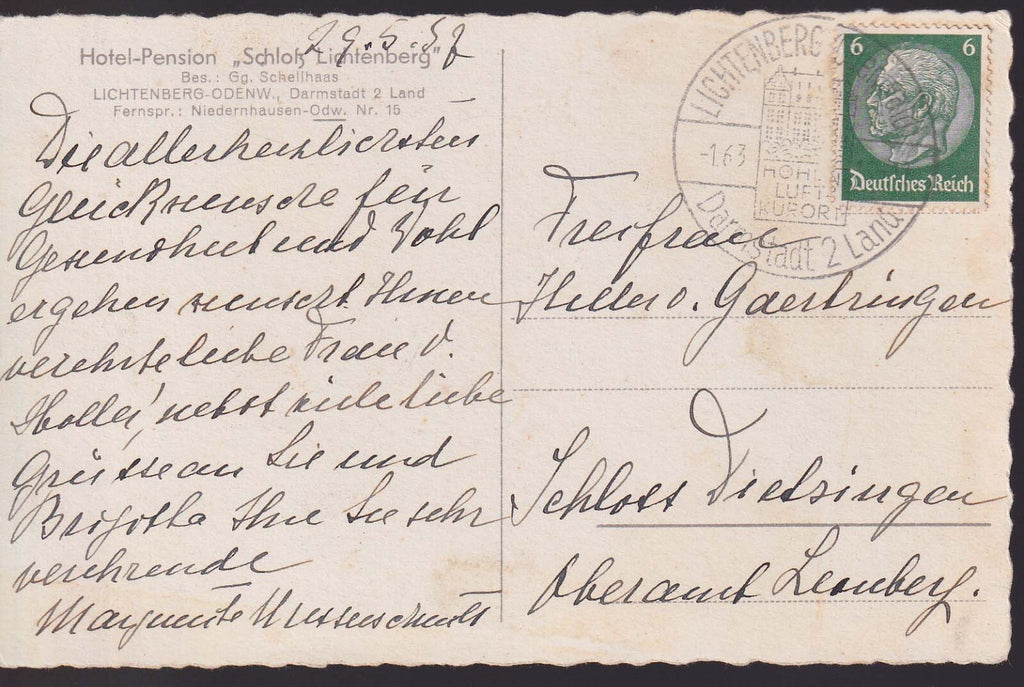 Hotel-Pension „Schloß Lichtenberg"
Bes.: Gg. Schellhaas
LICHTENBERG-ODENW., Darmstadt 2 Land
Fernspr.: Niedernhausen-Odw. Nr. 15
29.5.37
Die allerherzlichsten
Glückwunsche für
Gesundheit und Wohl
ergehen wunscht Ihnen
verehrte liebe Frau v.
Holler, nebst viele liebe
Grüsse an Sie und
Brigotta Ihre Sie sehr
verehrende
Marguerite
LICHTENBERG
-1.63
HÖHEN
LUFT
KURORT
Darmstadt 2 Land
6 6
Deutsches Reich
Freifrau
Hiller v. Gaertringen
Schloss Dietzingen
Oberamt Leonberg.